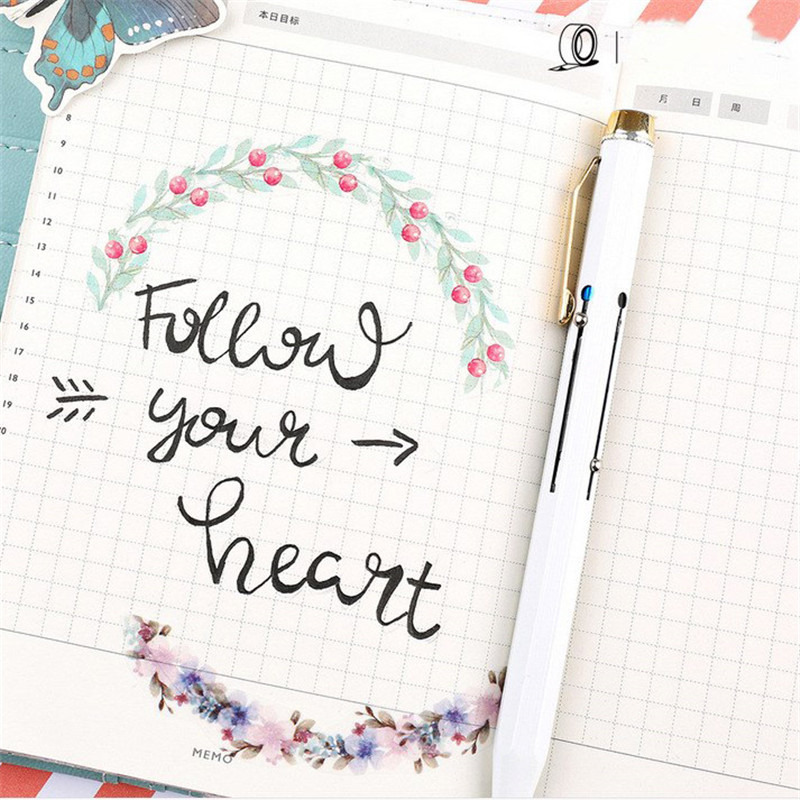 本日目标
月 日 周
8
9
10
11
12
13
14
15
16
17
18
19
20
Follow
your
heart
MEMO